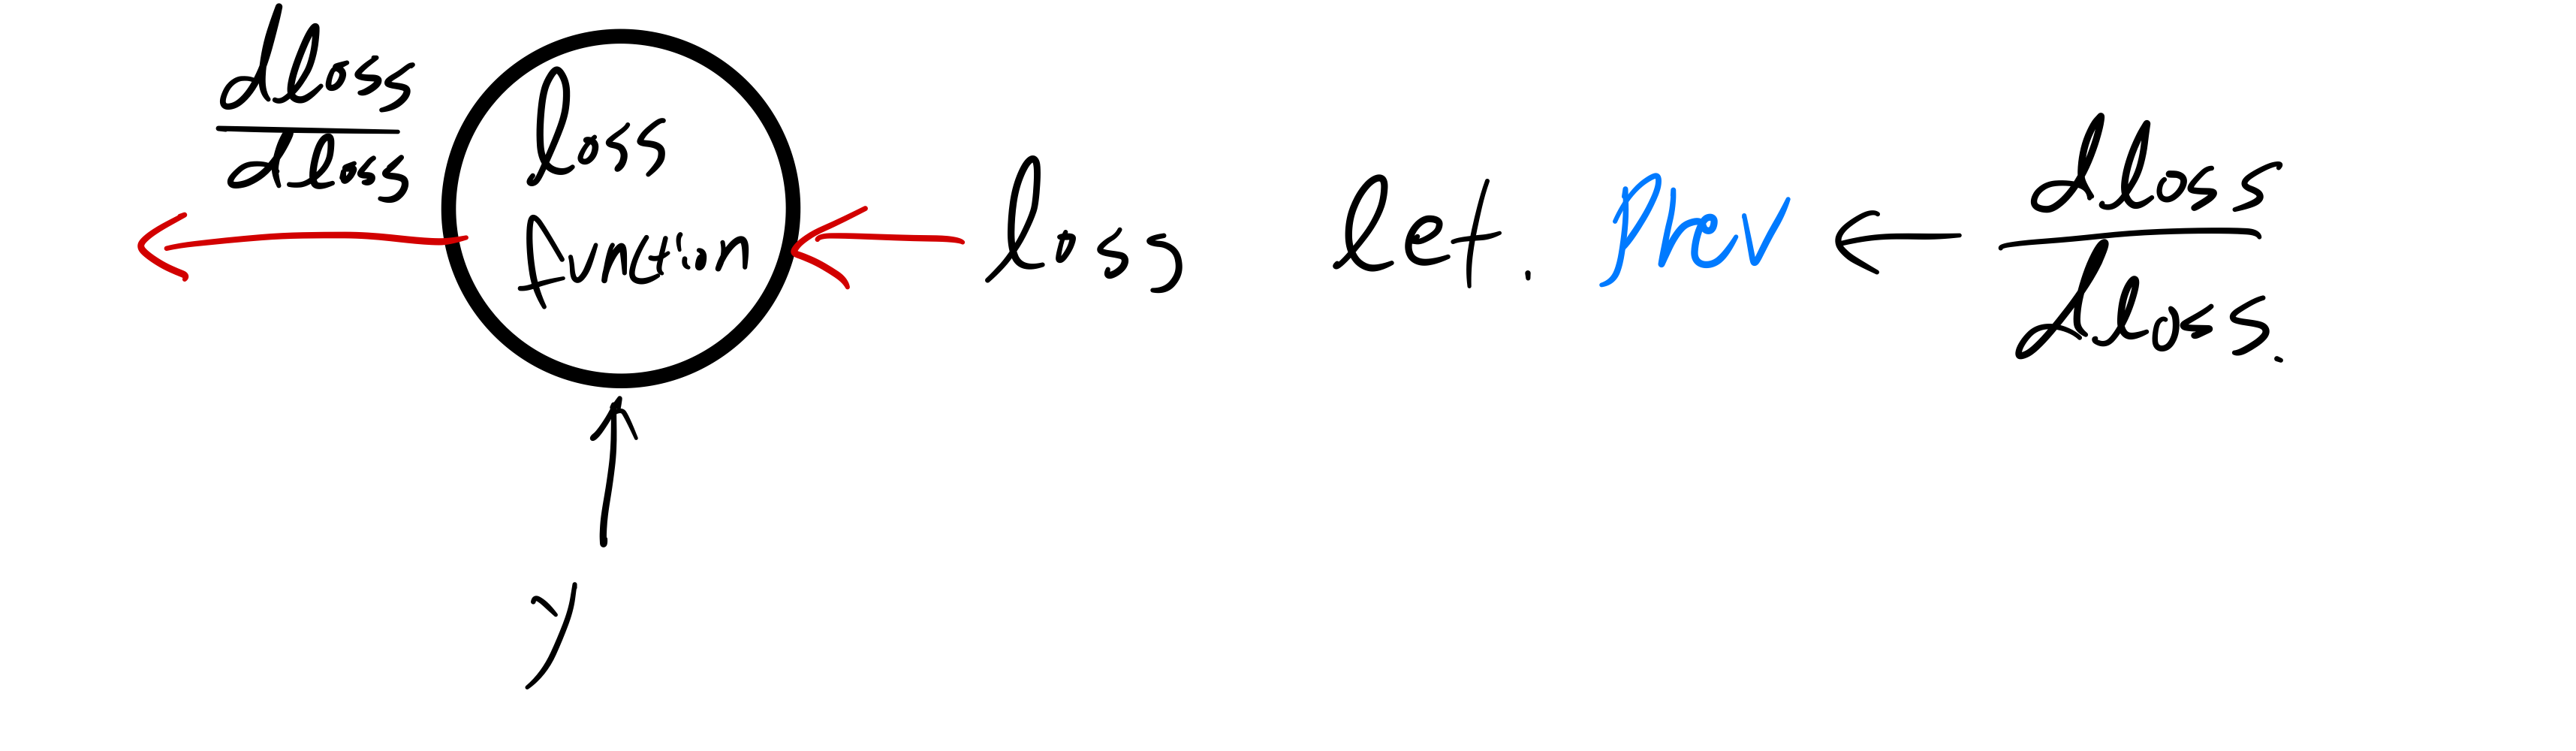 dloss
dloss
loss
function
loss
let. Prev ← dloss
dloss.
y